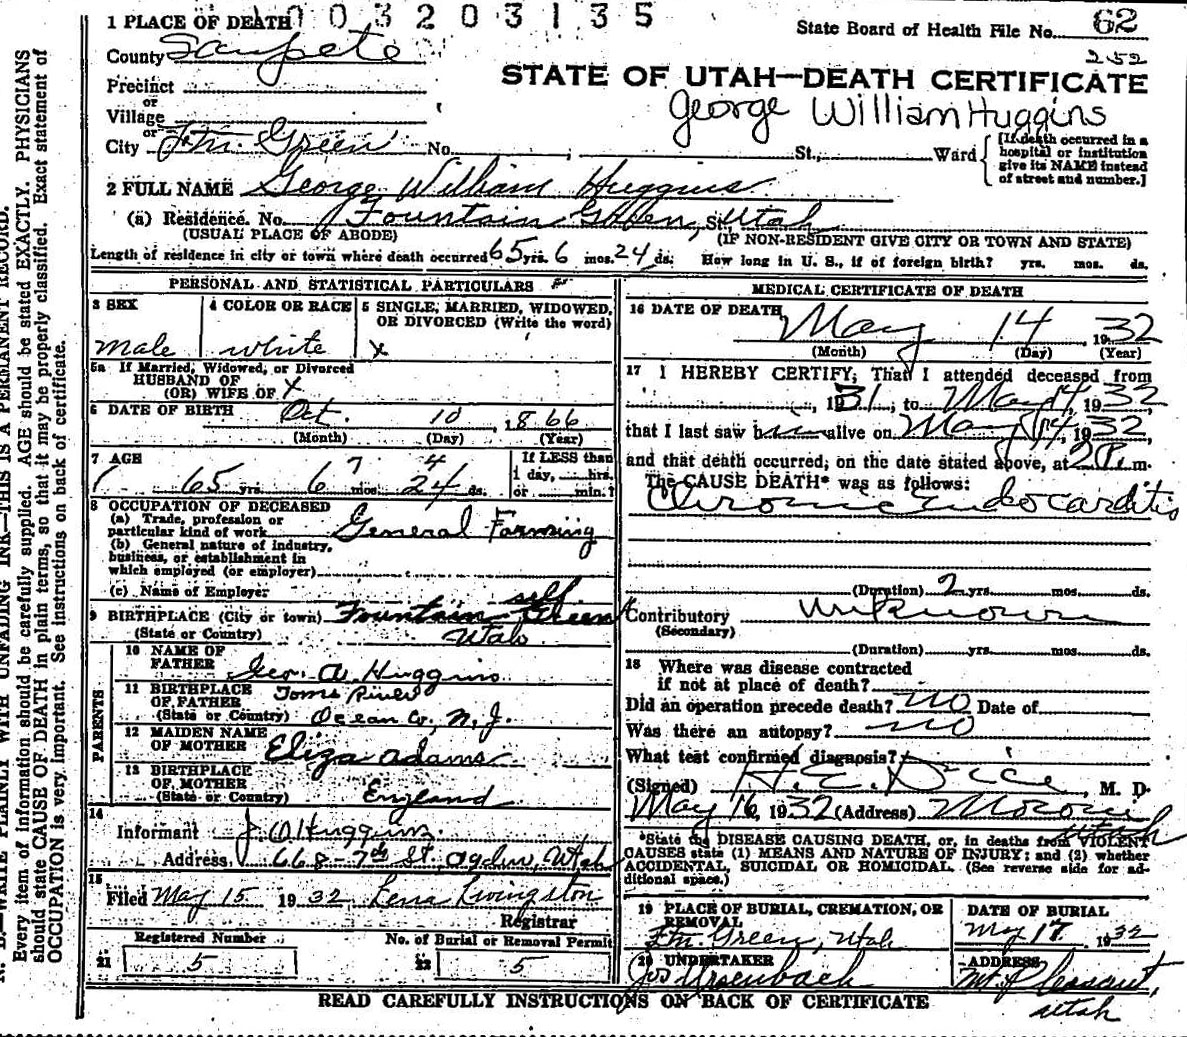 1 PLACE OF DEATH 003203135
State Board of Health File No. 62
County Sanpete
252
STATE OF UTAH—DEATH CERTIFICATE
Precinct
or
Village
George William Huggins
or
City Ftn. Green No. St., Ward
[If death occurred in a
hospital or institution
give its NAME instead
of street and number.]
2 FULL NAME George William Huggins
(a) Residence. No. Fountain Green, St. Utah
(USUAL PLACE OF ABODE) (IF NON-RESIDENT GIVE CITY OR TOWN AND STATE)
Length of residence in city or town where death occurred 65 yrs. 6 mos. 24 ds. How long in U. S., if of foreign birth? yrs. mos. ds.
PERSONAL AND STATISTICAL PARTICULARS
3 SEX 4 COLOR OR RACE 5 SINGLE, MARRIED, WIDOWED,
OR DIVORCED (Write the word)
male white x
5a If Married, Widowed, or Divorced
HUSBAND OF
(OR) WIFE OF x
6 DATE OF BIRTH Oct. 10 1866
(Month) (Day) (Year)
7 AGE 7 4 If LESS than
65 yrs. 6 mos. 24 ds. 1 day, hrs.
or min.?
8 OCCUPATION OF DECEASED
(a) Trade, profession or
particular kind of work General Farming
(b) General nature of industry,
business, or establishment in
which employed (or employer)
(c) Name of Employer self
9 BIRTHPLACE (City or town) Fountain Green
(State or Country) Utah
PARENTS
10 NAME OF
FATHER Geo. A. Huggins
11 BIRTHPLACE Toms River
OF FATHER
(State or Country) Ocean Co, N. J.
12 MAIDEN NAME
OF MOTHER Eliza Adams
13 BIRTHPLACE
OF MOTHER
(State or Country) England
14
Informant J O Huggins
Address 668-7th St. Ogden, Utah
15
Filed May 15 1932 Lena Livingston
Registrar
Registered Number No. of Burial or Removal Permit
21 5 22 5
MEDICAL CERTIFICATE OF DEATH
16 DATE OF DEATH May 14 1932
(Month) (Day) (Year)
17 I HEREBY CERTIFY, That I attended deceased from
, 1931, to May 14, 1932
that I last saw him alive on May 14, 1932,
and that death occurred, on the date stated above, at 2 P. m.
The CAUSE DEATH* was as follows:
Chronic Endocarditis
(Duration) 2 yrs. mos. ds.
Contributory unknown
(Secondary)
(Duration) yrs. mos. ds.
18 Where was disease contracted
if not at place of death?
Did an operation precede death? no Date of
Was there an autopsy? no
What test confirmed diagnosis?
(Signed) H. E. Dice, M. D.
May 16, 1932 (Address) Moroni
Utah
*State the DISEASE CAUSING DEATH, or, in deaths from VIOLENT
CAUSES state (1) MEANS AND NATURE OF INJURY; and (2) whether
ACCIDENTAL, SUICIDAL OR HOMICIDAL. (See reverse side for ad-
ditional space.)
19 PLACE OF BURIAL, CREMATION, OR
REMOVAL
Ftn. Green, Utah
DATE OF BURIAL
May 17 1932
20 UNDERTAKER
Jos Ursenbach
ADDRESS
Mt. Pleasant,
Utah
READ CAREFULLY INSTRUCTIONS ON BACK OF CERTIFICATE
WRITE PLAINLY WITH UNFADING INK—THIS IS A PERMANENT RECORD.
Every item of information should be carefully supplied. AGE should be stated EXACTLY. PHYSICIANS
should state CAUSE OF DEATH in plain terms, so that it may be properly classified. Exact statement of
OCCUPATION is very important. See instructions on back of certificate.